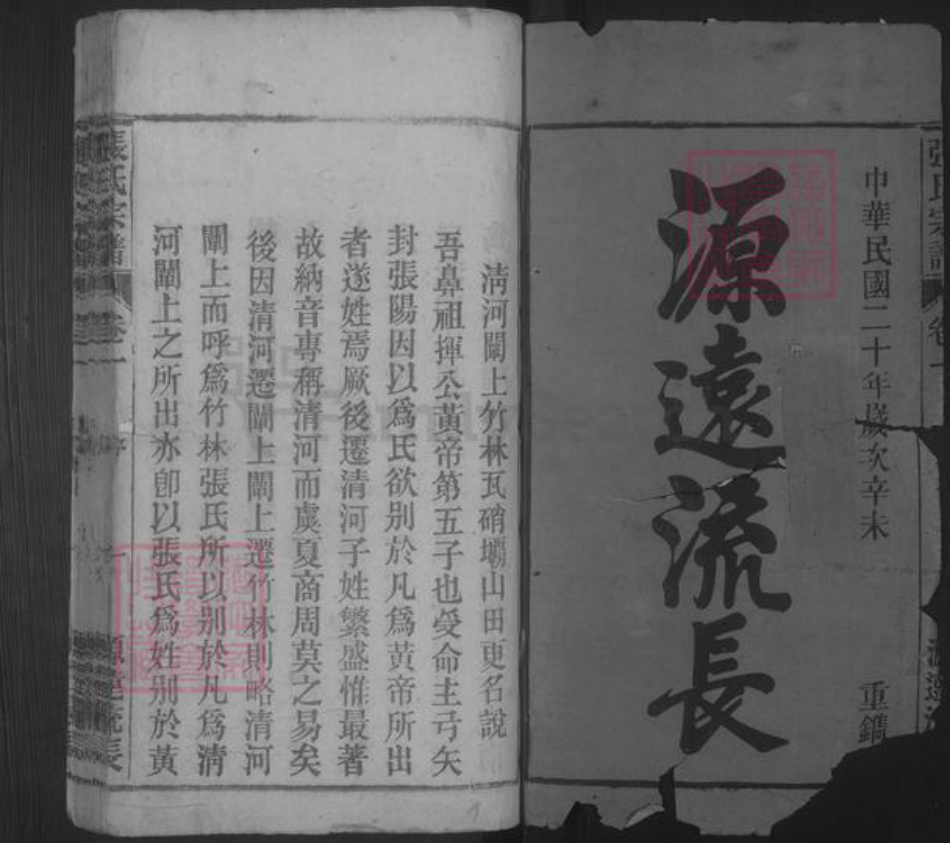 中華民國二十年歲次辛未 重鐫
源遠流長
清河闈上竹林瓦硝壩山田更名說
吾鼻祖揮公黃帝第五子也受命主弓矢
封張陽因以爲氏欲别於凡爲黃帝所出
者遂姓焉厥後遷清河子姓繁盛惟最著
故納音專稱清河而虞夏商周莫之易矣
後因清河遷闈上闈上遷竹林則略清河
闈上而呼爲竹林張氏所以别於凡爲清
河闈上之所出亦卽以張氏爲姓别於黃
張氏宗譜 卷一 序 一 源遠流長